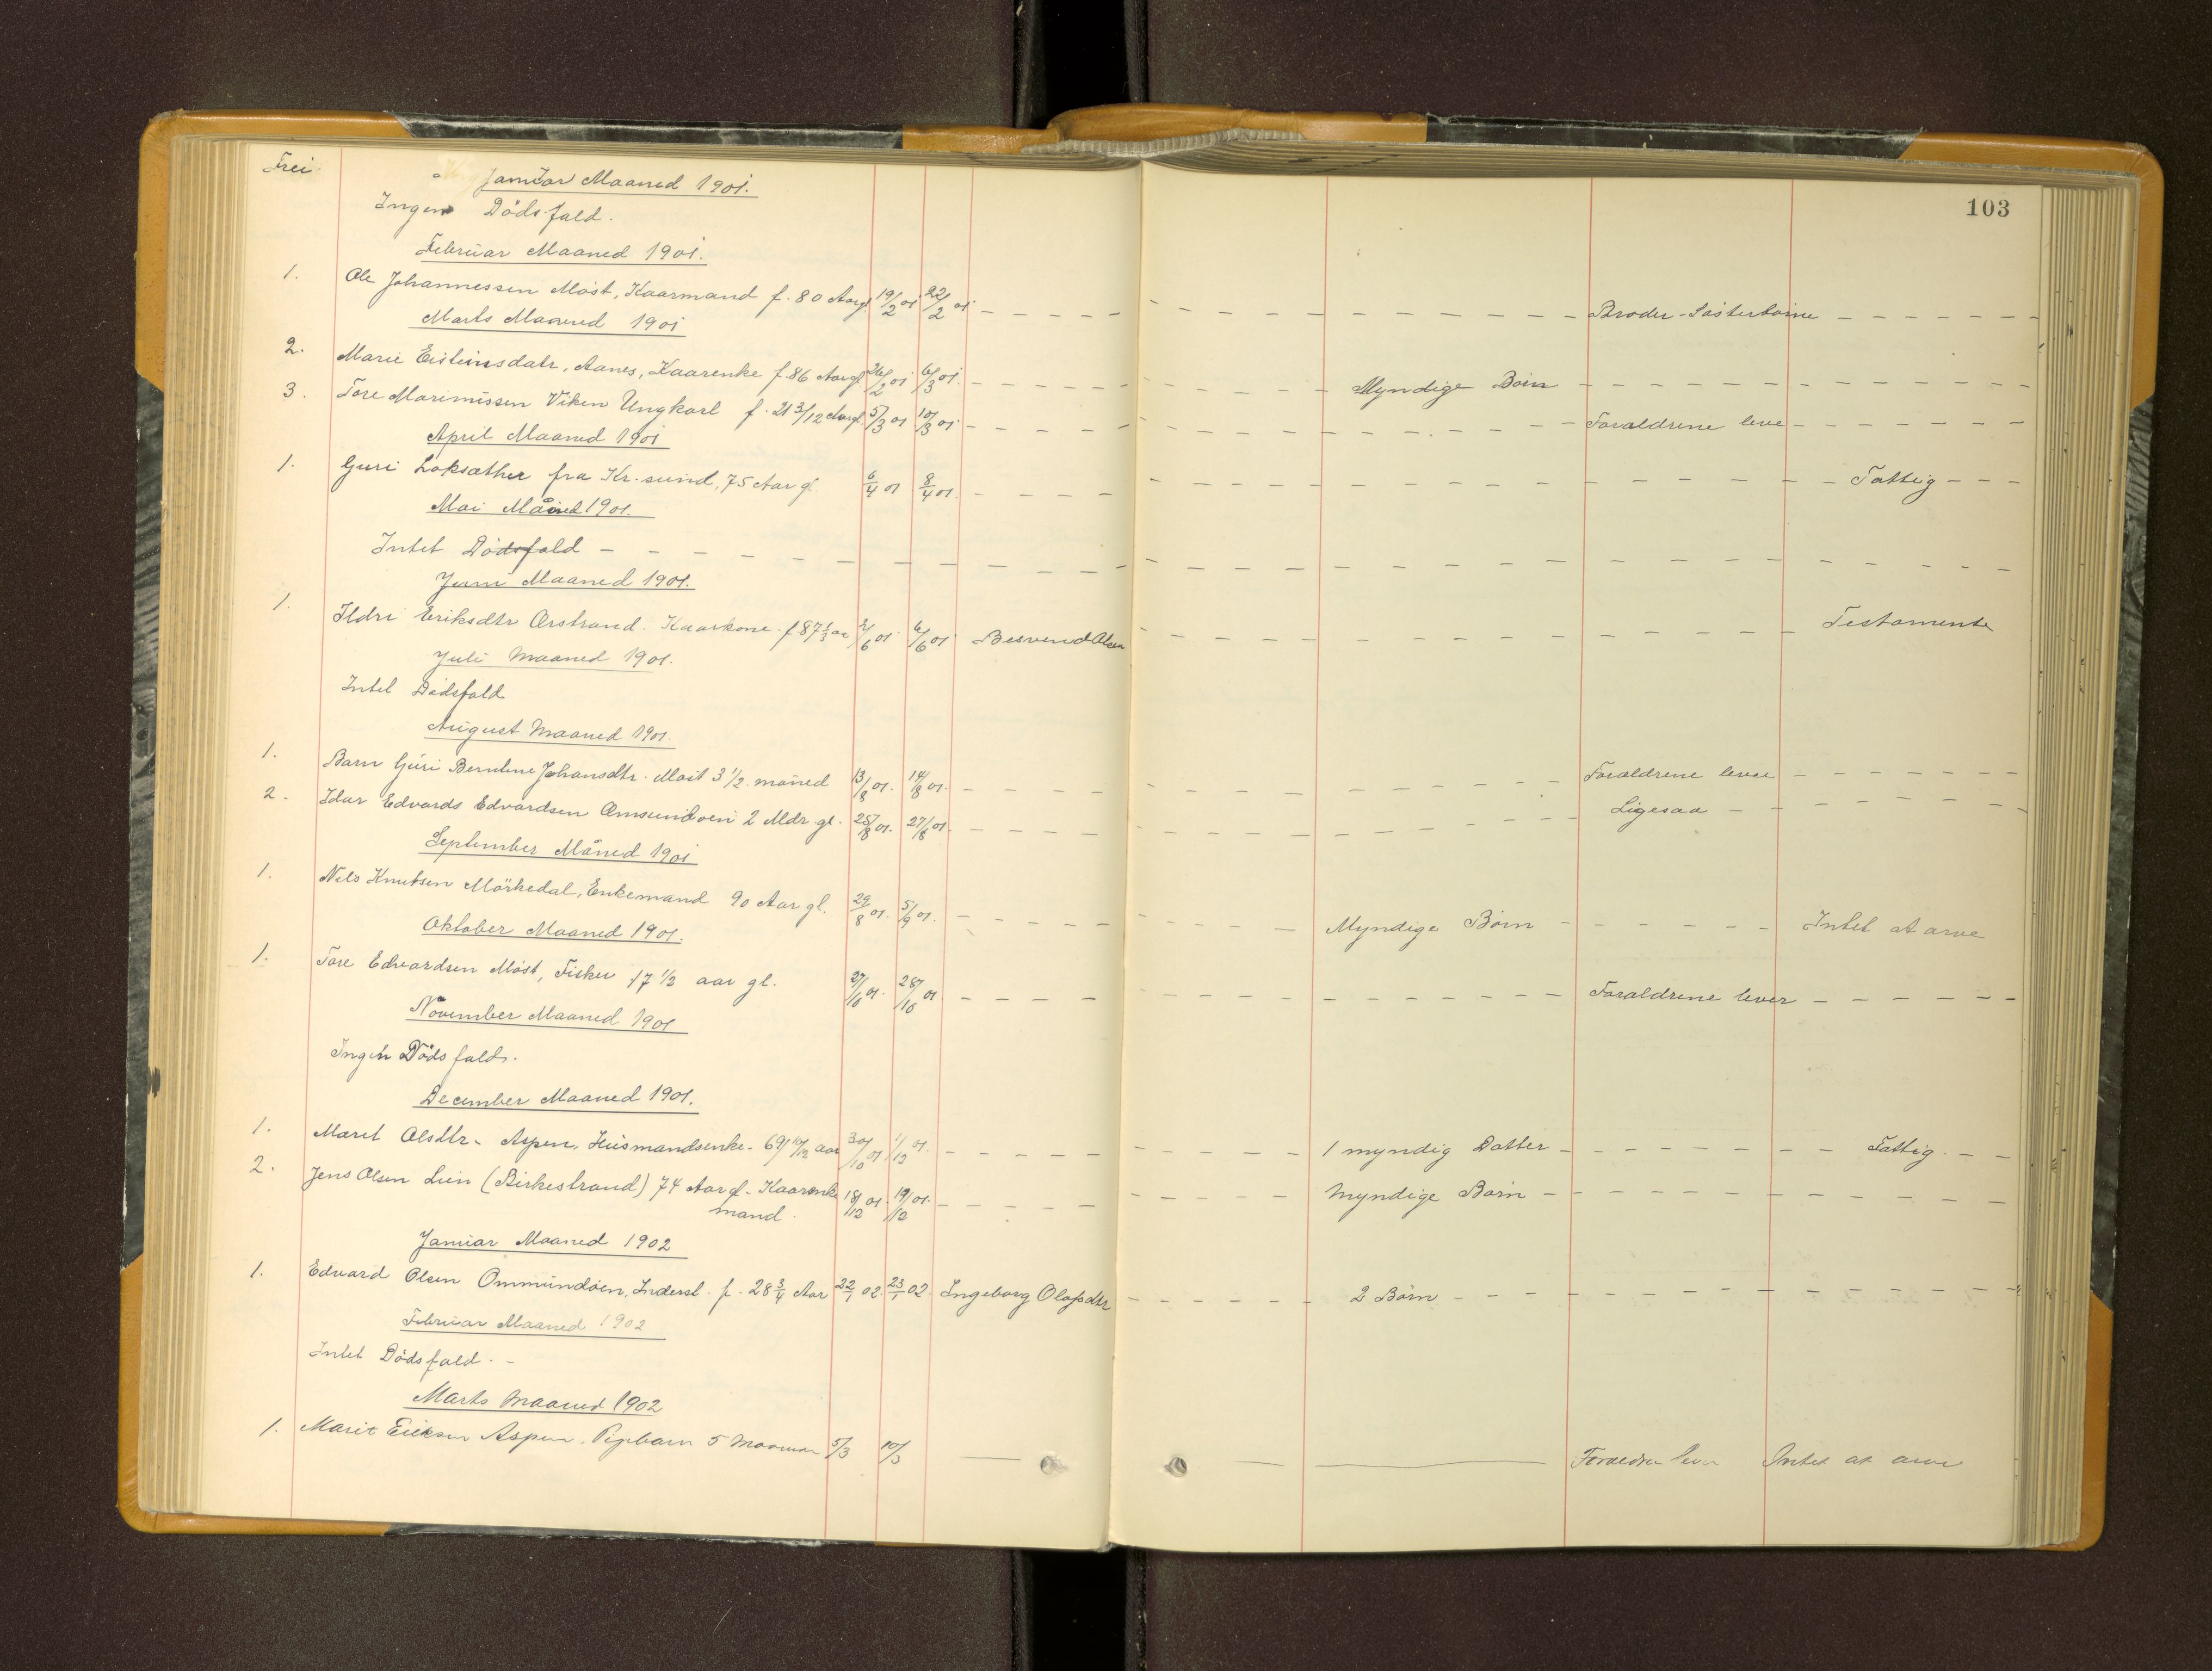 Frei.
103
Januar Maaned 1901.
Ingen Dödsfald.
Februar Maaned 1901.
1. Ole Johannessen Möst, Kaarmand f. 80 Aar gl. 19/2 01 22/2 01 - - - Broder-Sösterbörn - - -
Marts Maaned 1901
2. Marie Eisteinsdatr, Aanes, Kaarenke f. 86 Aar gl. 26/2 01 6/3 01. - - - Myndige Börn - - -
3. Tore Viken Ungkarl f. 21 3/12 Aar gl. 5/3 01 10/3 01 - - - Foræeldrene leve - - -
April Maaned 1901
1. Guri Loksæther fra Kr.sund, 75 Aar gl 6/4 01 8/4 01. - - - Fattig - - -
Mai Måned 1901.
Intet Dödsfald - - -
Juni Maaned 1901.
1. Ildri Eriksdtr Orstrand. Kaarkone. f 87 1/3 aar 2/6 01. 6/6 01 Olsen - - - Testamente
Juli Maaned 1901.
Intet Dödsfald
August Maaned 1901.
1. Barn Guri Berntine Johansdtr. Möst 3 1/2 måned 13/8 01. 14/8 01. - - - Foræeldrene lever - - -
2. Idar Edvards Edvardsen 2 Mdr. gl. 25/8 01. 27/8 01. - - - Ligesaa - - -
September Måned 1901
1. Nils Knutsen Mörkedal, Enkemand 90 Aar gl. 29/8 01. 5/9 01. - - - Myndige Börn - - - Intet at arve
Oktober Maaned 1901.
1. Tore Edvardsen Möst, Fisker 17 1/2 aar gl. 27/10 01. 28/10 01. - - - Foræeldrene lever - - -
November Maaned 1901
Ingen Dödsfald.
December Maaned 1901.
1. Marit Olsdtr. Aspen, Husmandsenke. 69 10/12 aar 30/10 01. 1/12 01. - - - 1 myndig Datter - - - Fattig. - -
2. Jens Olsen Lien (Birkestrand) 74 Aar gl. Kaarenke 18/12 01. 19/12 01. - - - Myndige Börn - - -
mand.
Januar Maaned 1902
1. Edvard Olsen Ommundöen, Inderst. f. 28 3/4 Aar 22/1 02. 23/1 02. Ingeborg Olafsdtr - - - 2 Börn - - -
Februar Maaned 1902
Intet Dödsfald. -
Marts Maaned 1902
1. Marit Eriksen Aspen. Pigebarn 5 Maaneder 5/3 10/3 — Foræeldre lever Intet at arve